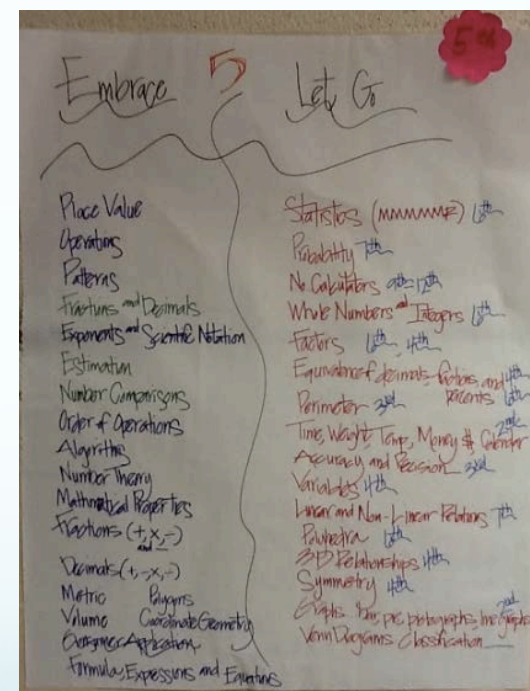 5th
Embrace
5
Let Go
Place Value
Operations
Patterns
Fractions and Decimals
Exponents and Scientific Notation
Estimation
Number Comparisons
Order of Operations
Algorithms
Number Theory
Mathematical Properties
Fractions (+, x, -)
and
Decimals (+, -, x, ÷)
Metric Polygons
Volume Coordinate Geometry
Application
Formulas, Expressions and Equations
Statistics 6th
Probability 7th
No Calculators 9th-12th
Whole Numbers and Integers 6th
Factors 6th, 4th
Equivalence of decimals, fractions, and 4th
percents 6th
Perimeter 3rd
2nd
Time, Weight, Temp, Money $ Calendar
Accuracy and Precision 3rd
Variables 4th
Linear and Non-Linear Relations 7th
Polyhedra 6th
3D Relationships 4th
Symmetry 4th
2nd
Graphs bar, pie, pictographs, line graphs
Venn Diagrams Classification